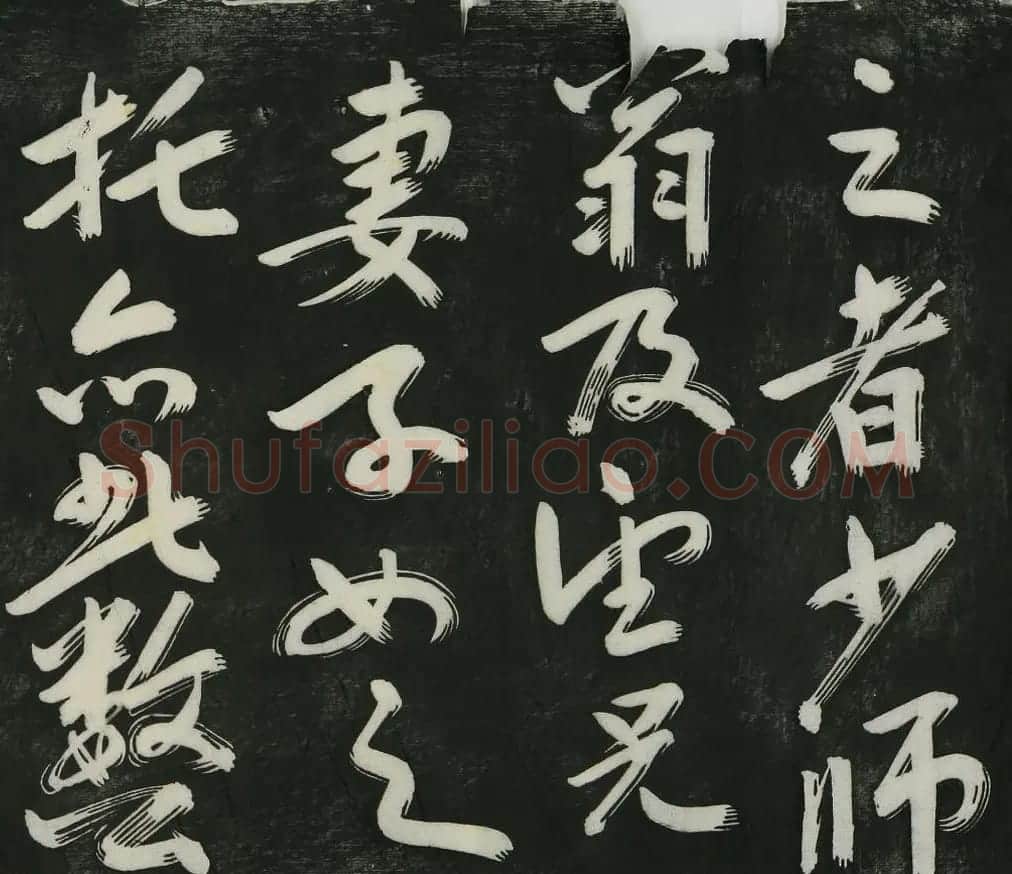 之者少师
翁及望兄
妻子之
托亦此数
Shufaziliao.COM